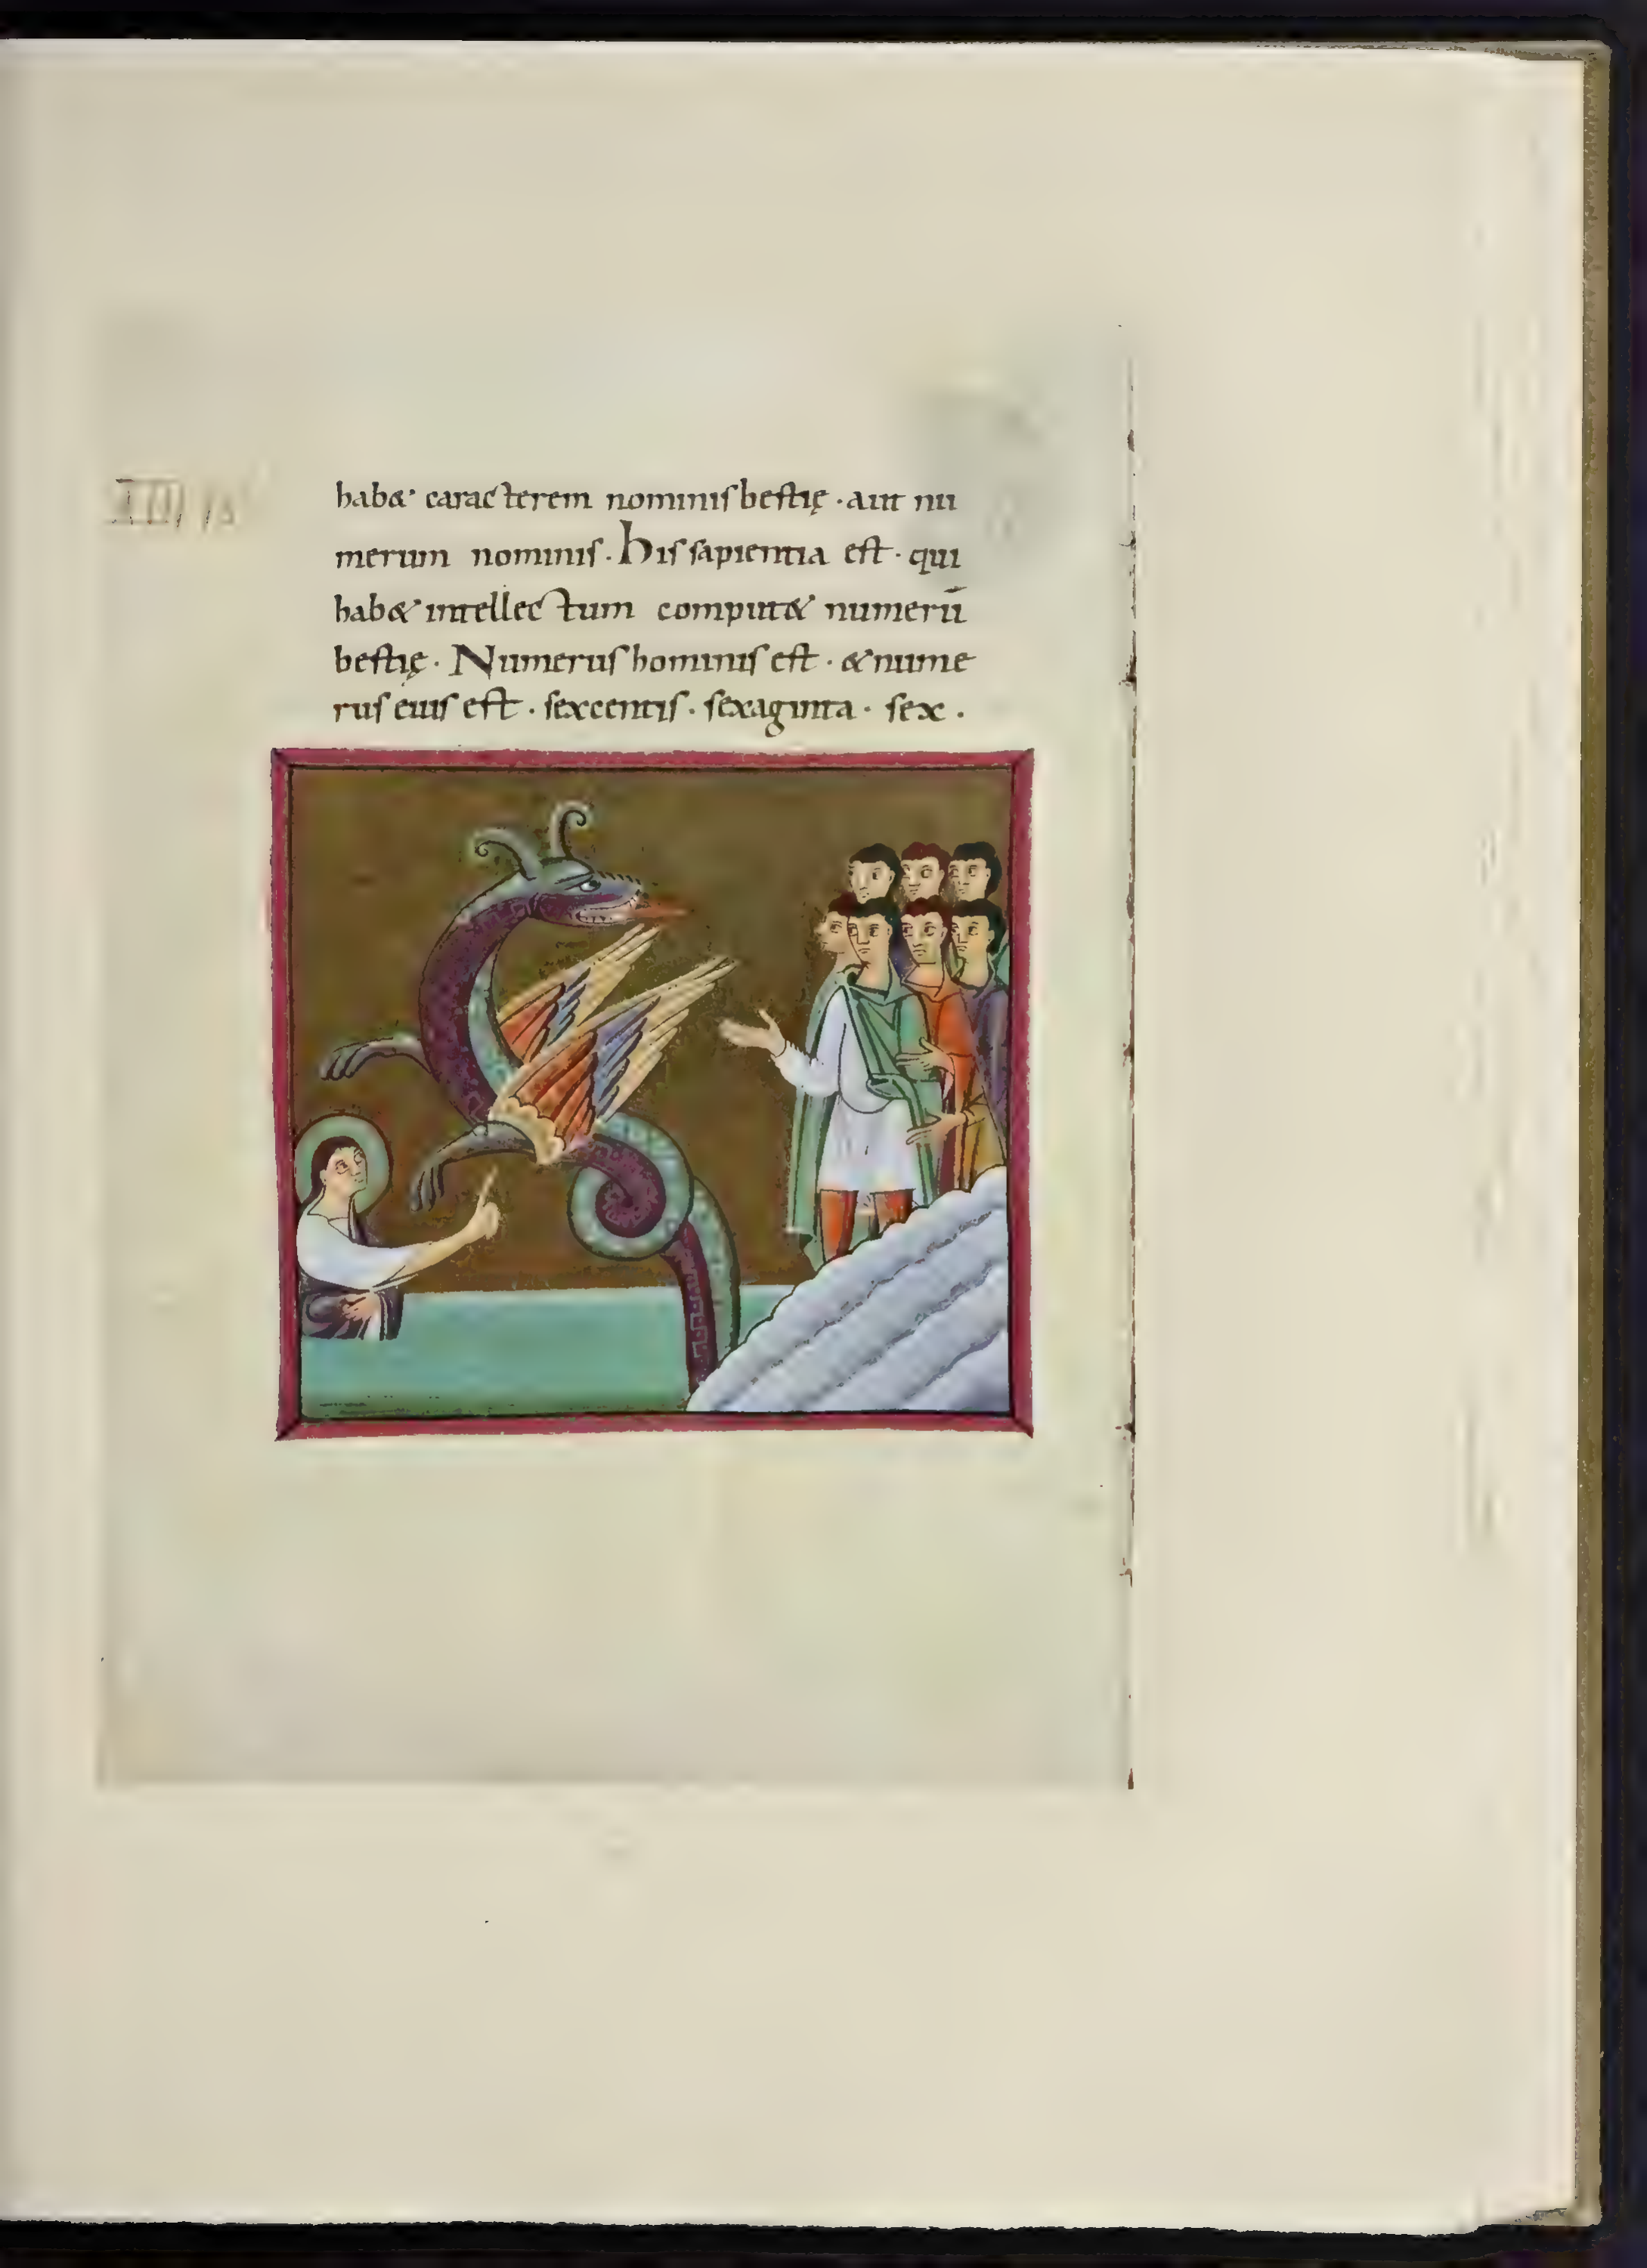 habet caracterem nominis bestię · aut nu
merum nominis. his sapientia est · qui
habet intellectum computet numerū
bestię · Numerus hominis est · & nume
rus eius est · sexcentis · sexaginta · sex ·